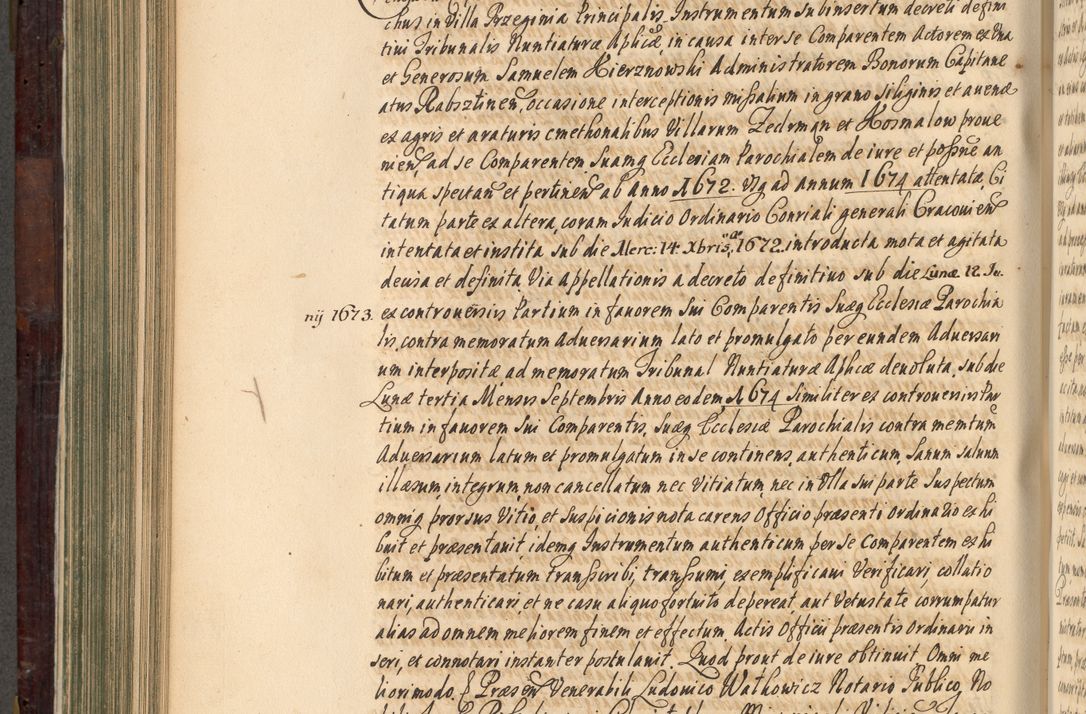 chus in Villa Przeginia Principalis Instrumentum subinsertum decreti defini
tiui Tribunalis Nuntiaturæ Aplicæ, in causa inter se Comparentem Actorem ex una
et Generosum Samuelem Hierznowski Administratorem Bonorum Capitane
atus Rabsztinen, occasione interceptionis missalium in grano siliginis et auenæ
ex agris et araturis cmethonalibus Villarum Zedrman et Kosmalow proue
nien, ad se Comparentem suamq Ecclesiam Parochialem de iure et possne an
tiqua spectan et pertinen ab Anno 1672. Vsq ad annum 1674 attentatæ, Ci
tatum parte ex altera, coram Iudicio Ordinario Conriali generali Cracouien
intentata et instita sub die Merc: 14 Xbris, 1672. introducta mota et agitata
decisa et definita, Via Appellationis a decreto definitiuo sub die Lunæ 12. Iu.
nij 1673. ex controuersijs Partium in fauorem sui Comparentis suæq Ecclesiæ Parochia
lis, contra memoratum Aduersarium lato et promulgato per eundem Aduersari
um interpositæ ad memoratum Tribunal Nuntiaturæ Aplicæ deuoluta, sub die
Lunæ tertia Mensis Septembris Anno eodem 1674 similiter ex controuersijs Par
tium in fauorem sui Comparentis, suæq Ecclesiæ Parochialis contra memtum
Aduersarium latum et promulgatum in se continens, authenticum, sanum saluum
illæsum, integrum, non cancellatum nec Vitiatum, nec in Vlla sui parte suspectum
omniq prorsus Vitio, et suspicionis nota carens Officio præsenti Ordinario exhi
buit et præsentauit, idemq Instrumentum authenticum per se Comparentem exhi
bitum et præsentatum transcribi, transsumi, exemplificari Verificari collatio
nari, authenticari, et ne casu aliquo fortuito depereat, aut Vetustate corrumpatur
alias ad omnem meliorem finem et effectum, Actis Officii præsentis Ordinarii in
seri, et connotari instanter postulauit. Quod prout de iure obtinuit Omni me
liori modo. Præsen Venerabili Ludouico Walkowicz Notario Publico, No